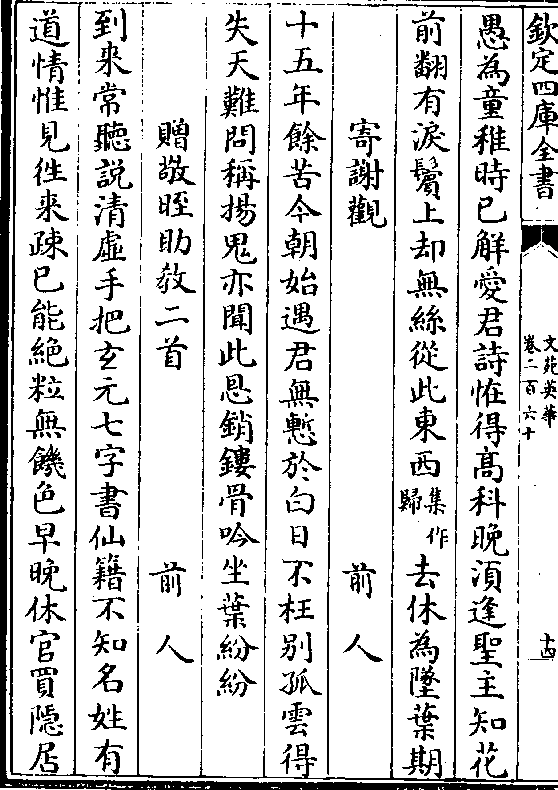 欽定四庫全書
文苑英華
卷二百六十
十四
愚為童稚時已解愛君詩恠得髙科晚湏逢聖主知花
前翻有淚鬢上却無絲從此東西集作歸去休為墜葉期
寄謝觀 前人
十五年餘苦今朝始遇君無慙於白日不枉别孤雲得
失天難問稱揚鬼亦聞此恩銷鏤骨吟坐葉紛紛
贈敬晊助教二首 前人
到來常聽說清虛手把玄元七字書仙籍不知名姓有
道情惟見徃來疎已能絶粒無饑色早晚休官買隠居